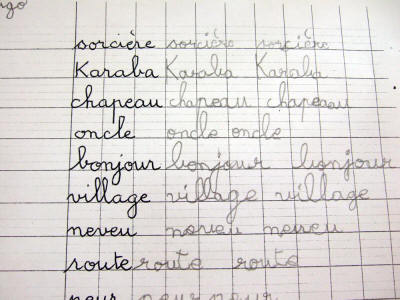 sorcière sorcière sorcière
Karaba Karaba Karaba
chapeau chapeau chapeau
oncle oncle oncle
bonjour bonjour bonjour
village village village
neveu neveu neveu
route route route
peur peur peur